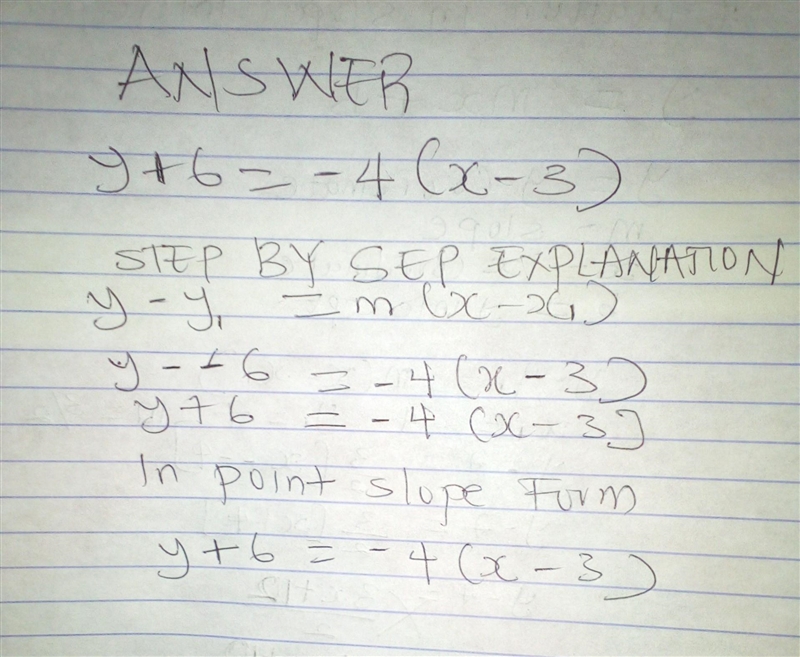 ANSWER
y+6 = -4(x-3)
STEP BY SEP EXPLANATION
y - y₁ = m(x-x₁)
y - -6 = -4(x-3)
y+6 = -4(x-3)
In point slope Form
y+6 = -4(x-3)